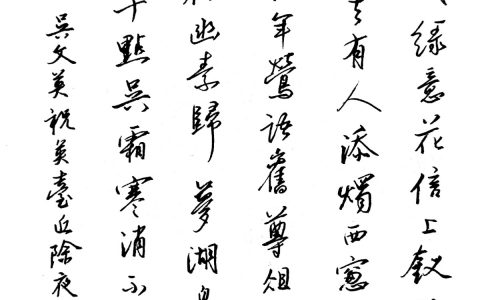 綠意花信上釵
去有人添燭西窓
年鶯語舊尊俎
幽素歸夢湖
千點吳霜寒消不
吳文英祝英臺近除夜